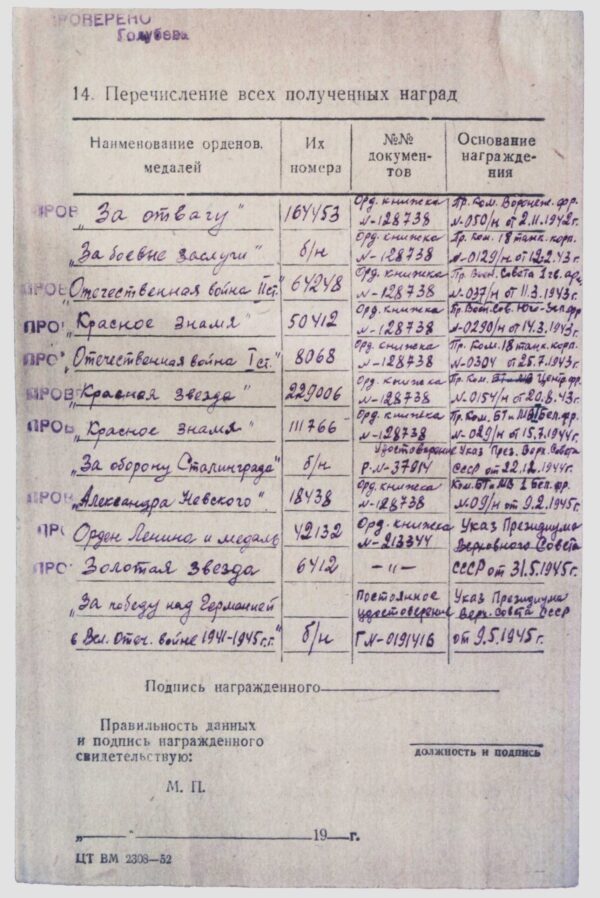 ПРОВЕРЕНО
Голубева
14. Перечисление всех полученных наград
Наименование орденов, медалей | Их номера | №№ документов | Основание награждения
ПРОВ „За отвагу" | 164453 | Орд. книжка №-128738 | Пр. Ком. Воронеж. фр. №-050/н от 2.11.1942г.
„За боевые заслуги" | б/н | Орд. книжка №-128738 | Пр. Ком. 18 танк. корп. №-0129/н от 12.2.43г.
ПРОВ „Отечественная война II ст." | 64248 | Орд. книжка №-128738 | Пр. Воен. Совета 1 гв. ар. №-037/н от 11.3.1943г.
ПРО „Красное Знамя" | 50412 | Орд. книжка №-128738 | Пр. Воен. Сов. Юго-Зап. фр. №-0290/н от 14.3.1943г.
ПРО „Отечественная война I ст." | 8068 | Орд. книжка №-128738 | Пр. Ком. 18 танк. корп. №-0304 от 25.7.1943г.
ПРОВ „Красная Звезда" | 229006 | Орд. книжка №-128738 | Пр. Ком. Центр. фр. №-0154/н от 20.8.43г.
ПРОВ „Красное Знамя" | 111766 | Орд. книжка №-128738 | Пр. Ком. БТ и МВ 1 Бел. фр. №-029/н от 15.7.1944г.
„За оборону Сталинграда" | б/н | Удостоверение Р-№-37914 | Указ През. Верх. Совета СССР от 22.12.1944г.
ПРОВ „Александра Невского" | 18438 | Орд. книжка №-128738 | Ком. БТ и МВ 1 Бел. фр. №-09/н от 9.2.1945г.
ПРО Орден Ленина и медаль | 42132 | Орд. книжка №-213344 | Указ Президиума Верховного Совета
ПРО Золотая Звезда | 6412 | -"- | СССР от 31.5.1945г.
„За победу над Германией | Постоянное удостоверение | Указ Президиума Верх. Совета СССР
в Вел. Отеч. войне 1941-1945г.г." | б/н | Г №-0191416 | от 9.5.1945г.
Подпись награжденного
Правильность данных
и подпись награжденного
свидетельствую:
должность и подпись
М. П.
„ " 19 г.
ЦТ ВМ 2308—52